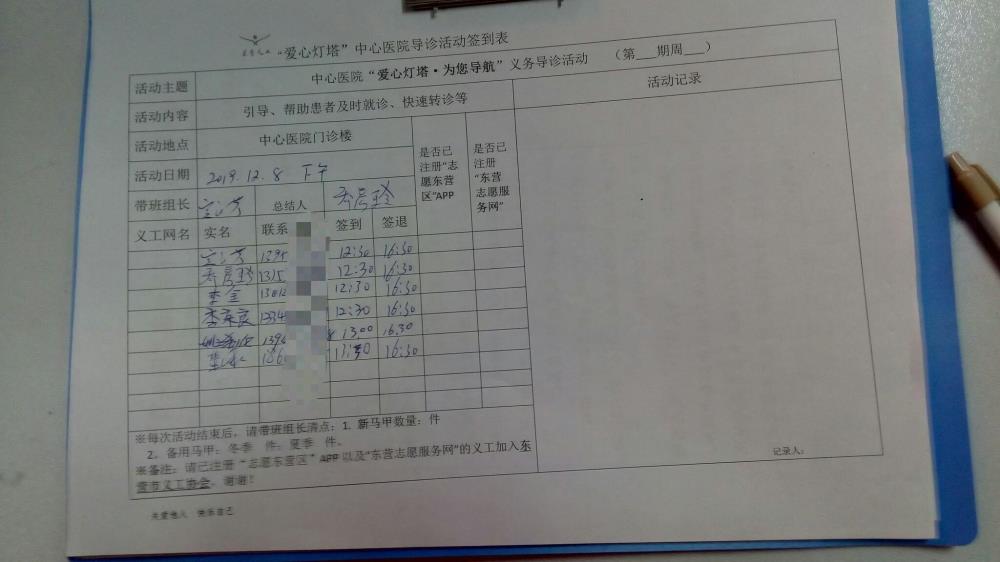 “爱心灯塔”中心医院导诊活动签到表
活动主题 中心医院“爱心灯塔·为您导航”义务导诊活动 （第___期周___）
活动内容 引导、帮助患者及时就诊、快速转诊等 活动记录
活动地点 中心医院门诊楼 是否已注册“志愿东营区”APP 是否已注册“东营志愿服务网”
活动日期 2019.12.8 下午
带班组长 总结人
义工网名 实名 联系 签到 签退
1395 12:30 16:30
1315 12:30 16:30
李金 12:30 16:30
12:30 16:30
139 13:00 16.30
16:30
※每次活动结束后，请带班组长清点：1. 新马甲数量： 件
2. 备用马甲：冬季 件；夏季 件。
※备注：请已注册“志愿东营区”APP以及“东营志愿服务网”的义工加入东
营市义工协会。谢谢！
记录人：
关爱他人 快乐自己